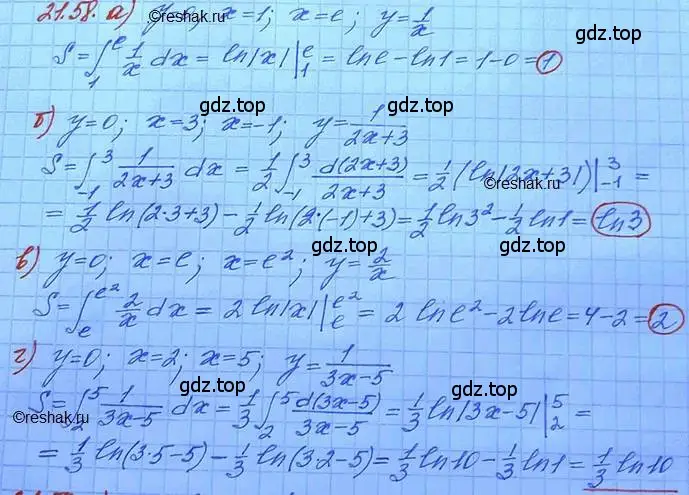 21.58. а) y=0; x=1; x=e; y=1/x
©reshak.ru
S=∫₁ᵉ 1/x dx = ln|x| |₁ᵉ = lne - ln1 = 1-0 = 1
gdz.top gdz.top
б) y=0; x=3; x=-1; y=1/(2x+3)
S=∫₋₁³ 1/(2x+3) dx = 1/2 ∫₋₁³ d(2x+3)/(2x+3) = 1/2 (ln|2x+3|) |₋₁³ =
©reshak.ru
= 1/2 ln(2·3+3) - 1/2 ln(2·(-1)+3) = 1/2 ln3² - 1/2 ln1 = ln3
gdz.top gdz.top
в) y=0; x=e; x=e²; y=2/x
S=∫ₑ^e² 2/x dx = 2 ln|x| |ₑ^e² = 2 lne² - 2lne = 4-2 = 2
г) y=0; x=2; x=5; y=1/(3x-5)
gdz.top gdz.top
S=∫₂⁵ 1/(3x-5) dx = 1/3 ∫₂⁵ d(3x-5)/(3x-5) = 1/3 ln|3x-5| |₂⁵ =
©reshak.ru
= 1/3 ln(3·5-5) - 1/3 ln(3·2-5) = 1/3 ln10 - 1/3 ln1 = 1/3 ln10
gdz.top gdz.top